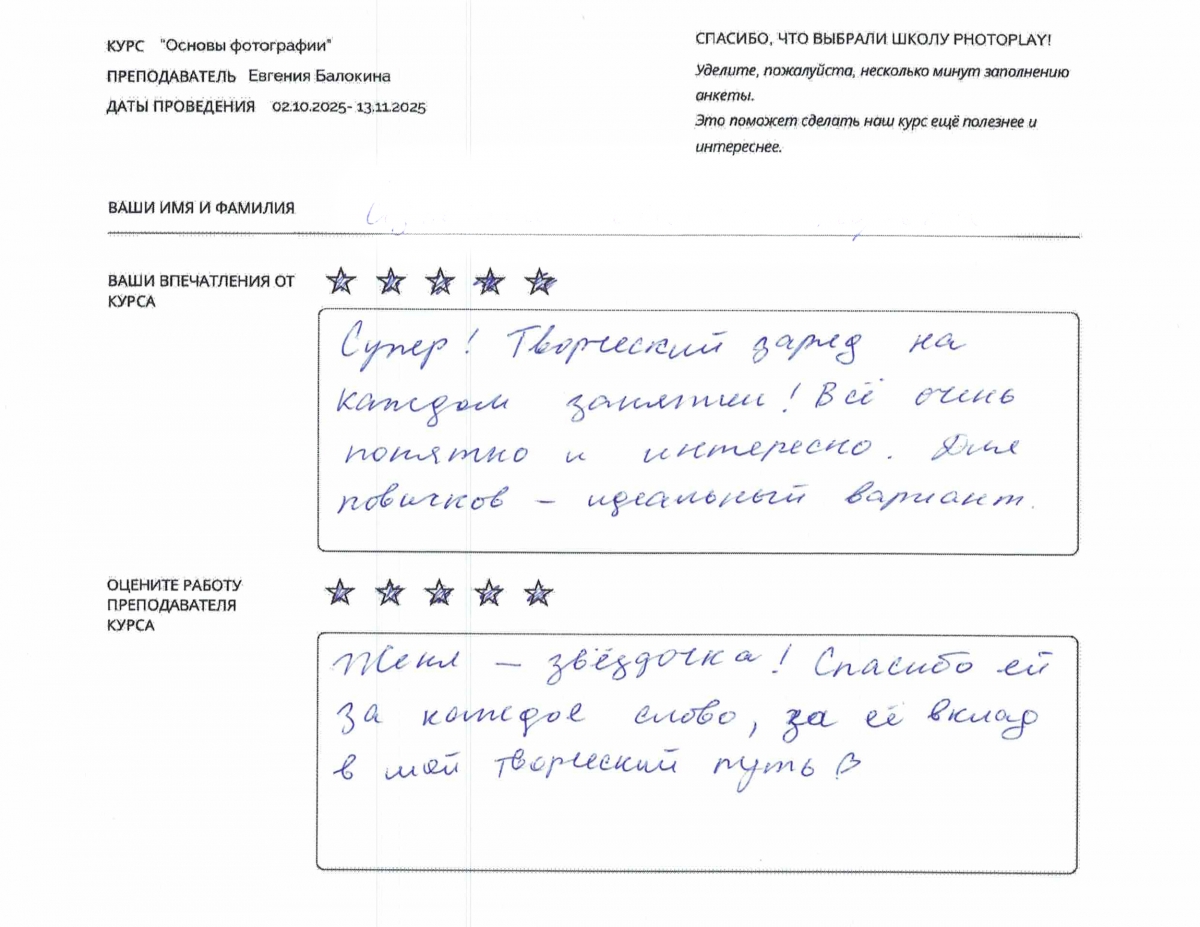 КУРС "Основы фотографии"
ПРЕПОДАВАТЕЛЬ Евгения Балокина
ДАТЫ ПРОВЕДЕНИЯ 02.10.2025- 13.11.2025
СПАСИБО, ЧТО ВЫБРАЛИ ШКОЛУ PHOTOPLAY!
Уделите, пожалуйста, несколько минут заполнению
анкеты.
Это поможет сделать наш курс ещё полезнее и
интереснее.
ВАШИ ИМЯ И ФАМИЛИЯ
ВАШИ ВПЕЧАТЛЕНИЯ ОТ
КУРСА
Супер! Творческий заряд на
каждом занятии! Всё очень
понятно и интересно. Для
новичков – идеальный вариант.
ОЦЕНИТЕ РАБОТУ
ПРЕПОДАВАТЕЛЯ
КУРСА
Женя – звёздочка! Спасибо ей
за каждое слово, за её вклад
в мой творческий путь ♡